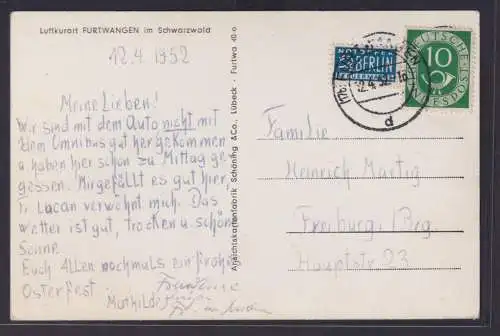 Luftkurort FURTWANGEN im Schwarzwald
12.4 1952
Meine Lieben!
Wir sind mit dem Auto nicht mit
dem Omnibus gut hergekommen
u haben hier schon zu Mittag ge-
gessen. Mir gefällt es gut hier,
verwöhnt mich. Das
Wetter ist gut, trocken u schöne
Sonne
Euch Allen nochmals ein frohes
Osterfest.
Muthilde
Ansichtskartenfabrik Schöning &Co., Lübeck · Furtwa 40·o
NOTOPFER
2 BERLIN
STEUERMARKE
DEUTSCHE
10
BUNDESPOST
d
Familie
Heinrich Martig
Freiburg i/Brg.
Hauptstr 23